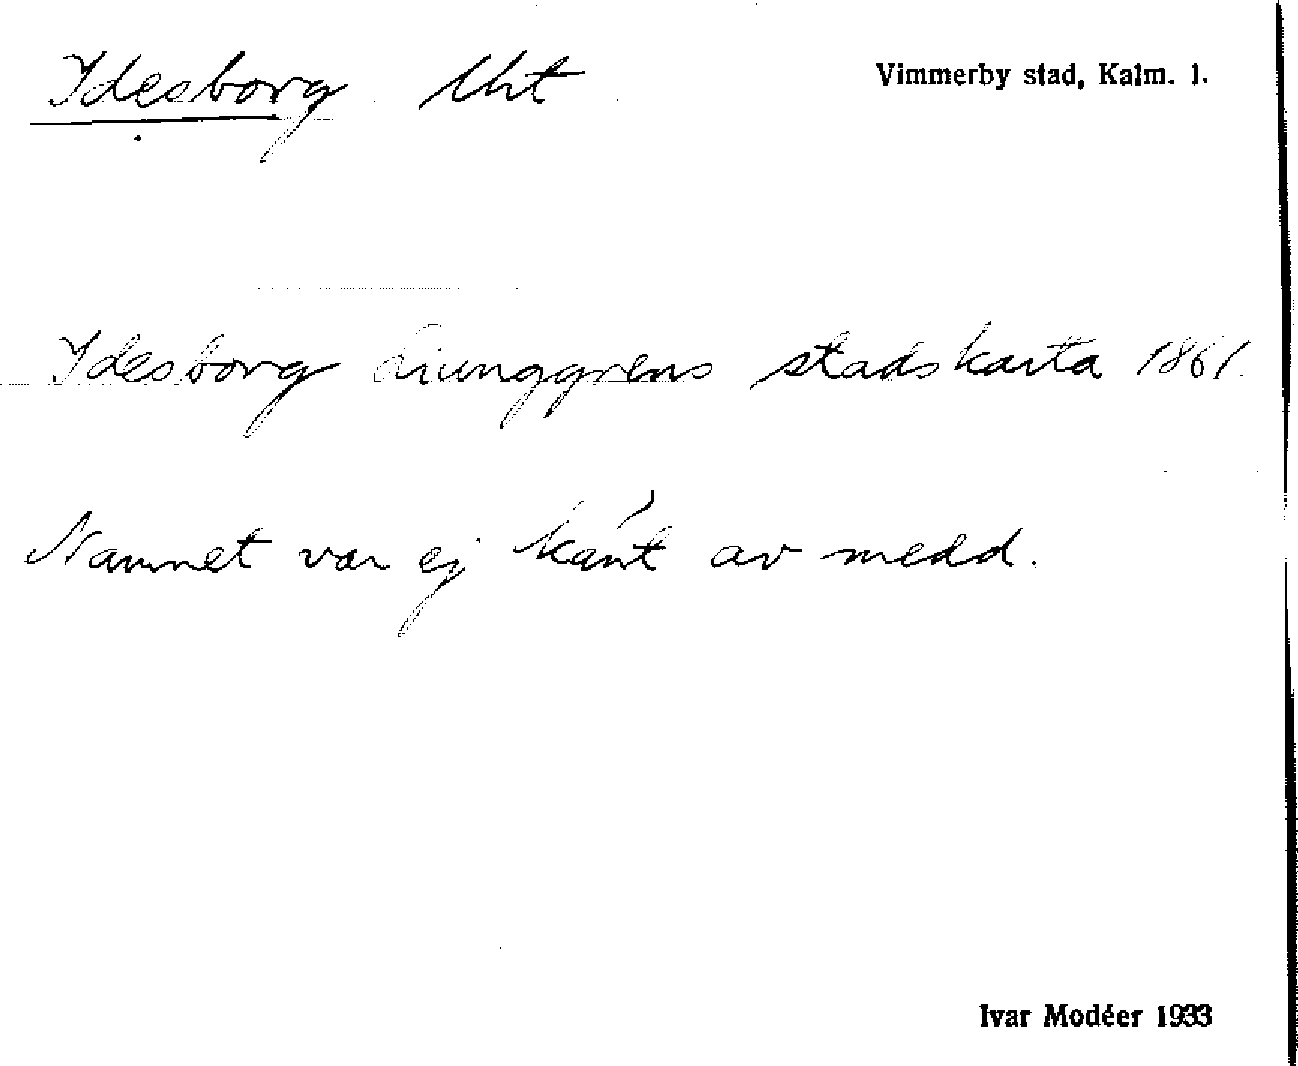 Idesborg lht Vimmerby stad, Kalm. l.
Idesborg Liunggrens stadskarta 1861.
Namnet var ej känt av medd.
Ivar Modéer 1933